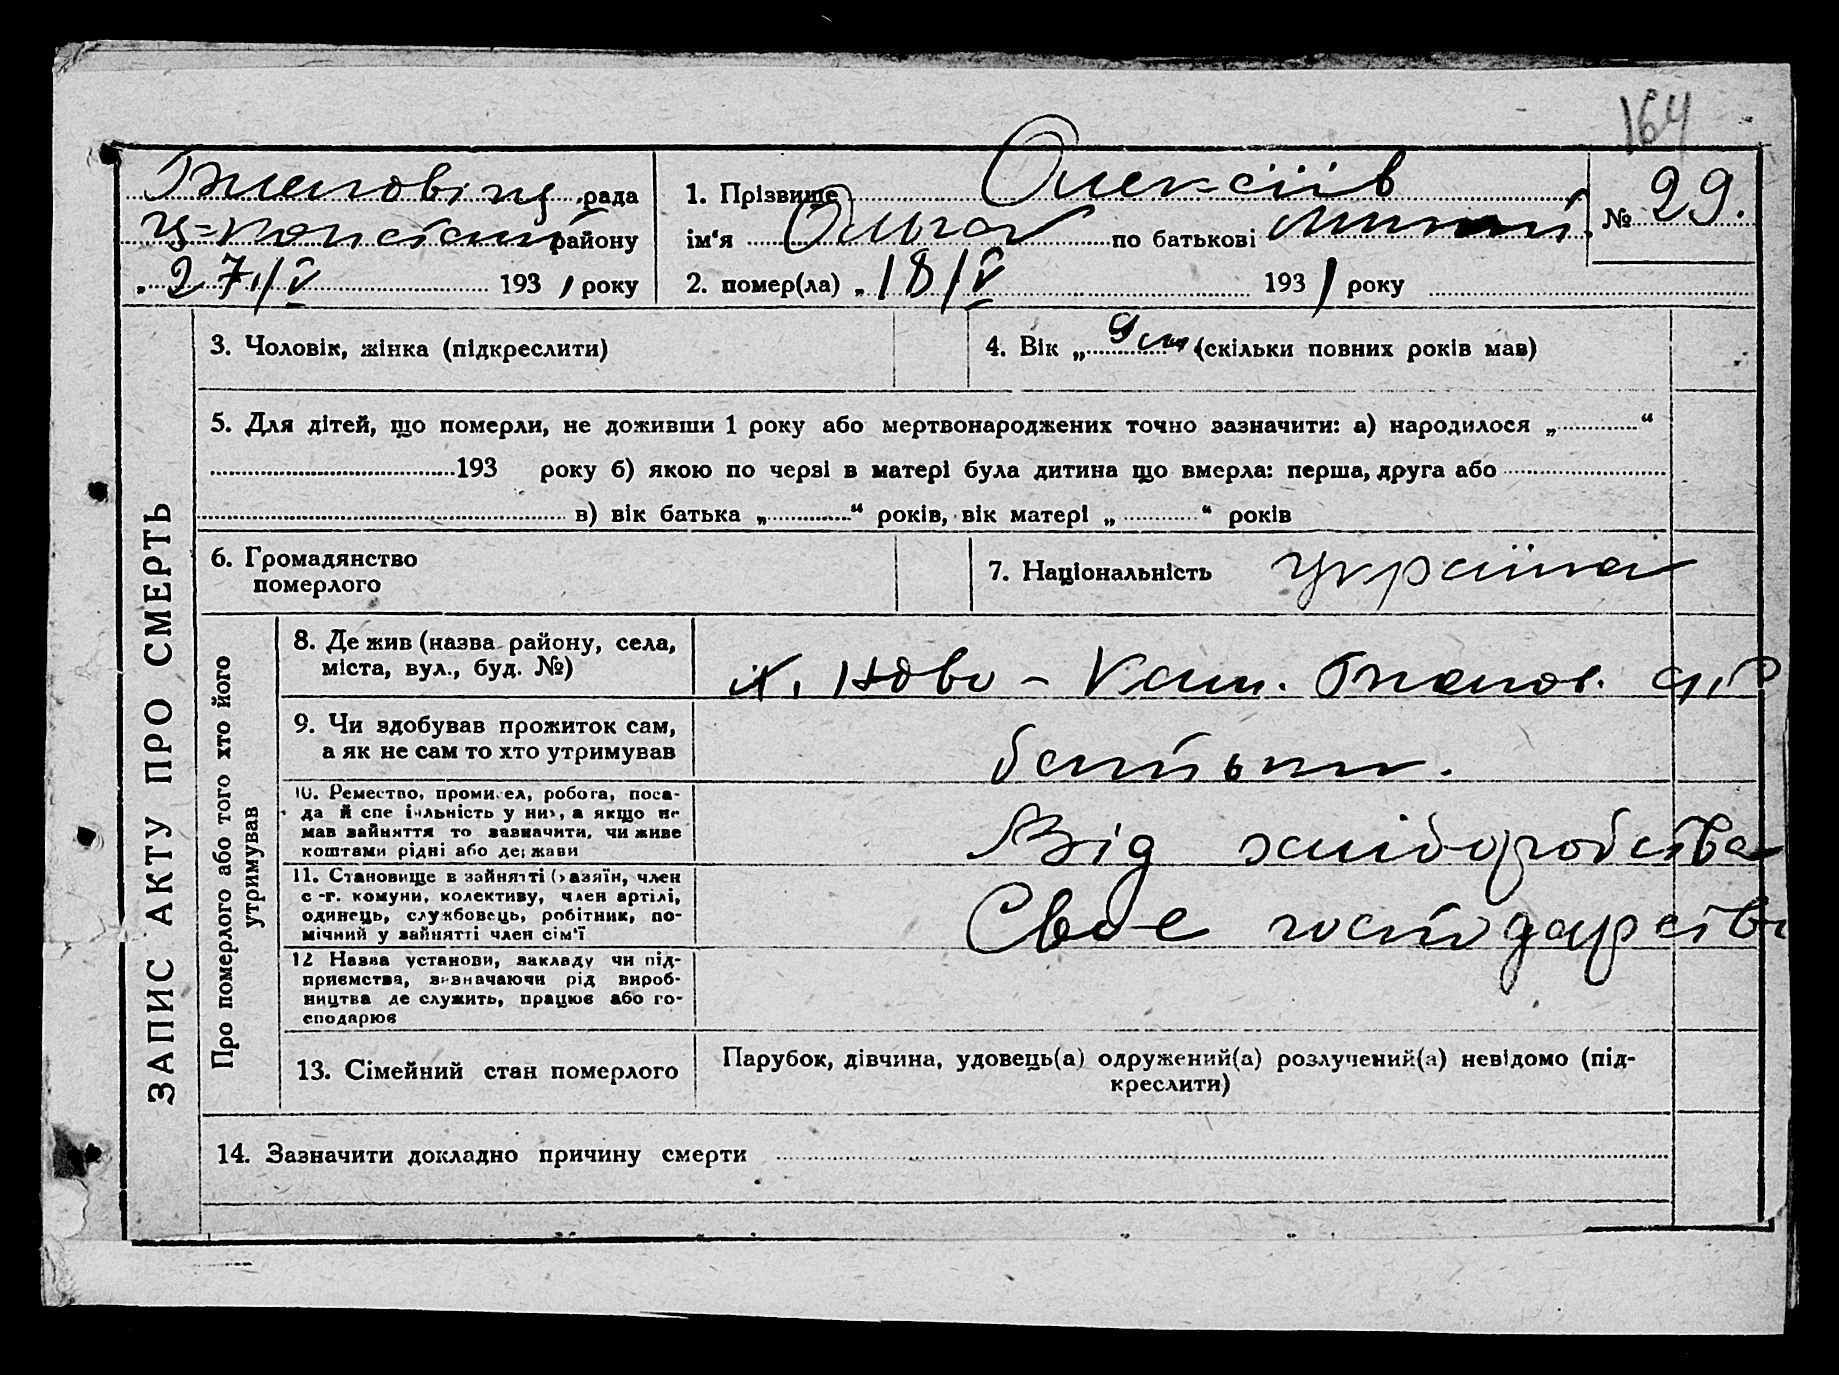 164
рада
району
„ 27/V 1931 року
1. Прізвище Олексіїв
ім'я Ольга по батькові
№ 29.
2. помер(ла) „ 18/V 1931 року
3. Чоловік, жінка (підкреслити)
4. Вік „ 9 (скільки повних років мав)
5. Для дітей, що померли, не доживши 1 року або мертвонароджених точно зазначити: а) народилося „ “
193 року б) якою по черзі в матері була дитина що вмерла: перша, друга або
в) вік батька „ “ років, вік матері „ “ років
6. Громадянство
померлого
7. Національність україна
ЗАПИС АКТУ ПРО СМЕРТЬ
Про померлого або того хто його
утримував
8. Де жив (назва району, села,
міста, вул., буд. №)
х. Ново-
9. Чи здобував прожиток сам,
а як не сам то хто утримував
батьки.
10. Ремество, промисел, робота, поса-
да й спеціяльність у них, а якщо не
мав зайняття то зазначити, чи живе
коштами рідні або держави
Від хліборобства
11. Становище в зайнятті (хазяїн, член
с-г. комуни, колективу, член артілі,
одинець, службовець, робітник, по-
мічний у зайнятті член сім'ї
Своє господарство
12 Назва установи, закладу чи під-
приємства, визначаючи рід вироб-
ництва де служить, працює або го-
сподарює
13. Сімейний стан померлого
Парубок, дівчина, удовець(а) одружений(а) розлучений(а) невідомо (під-
креслити)
14. Зазначити докладно причину смерти